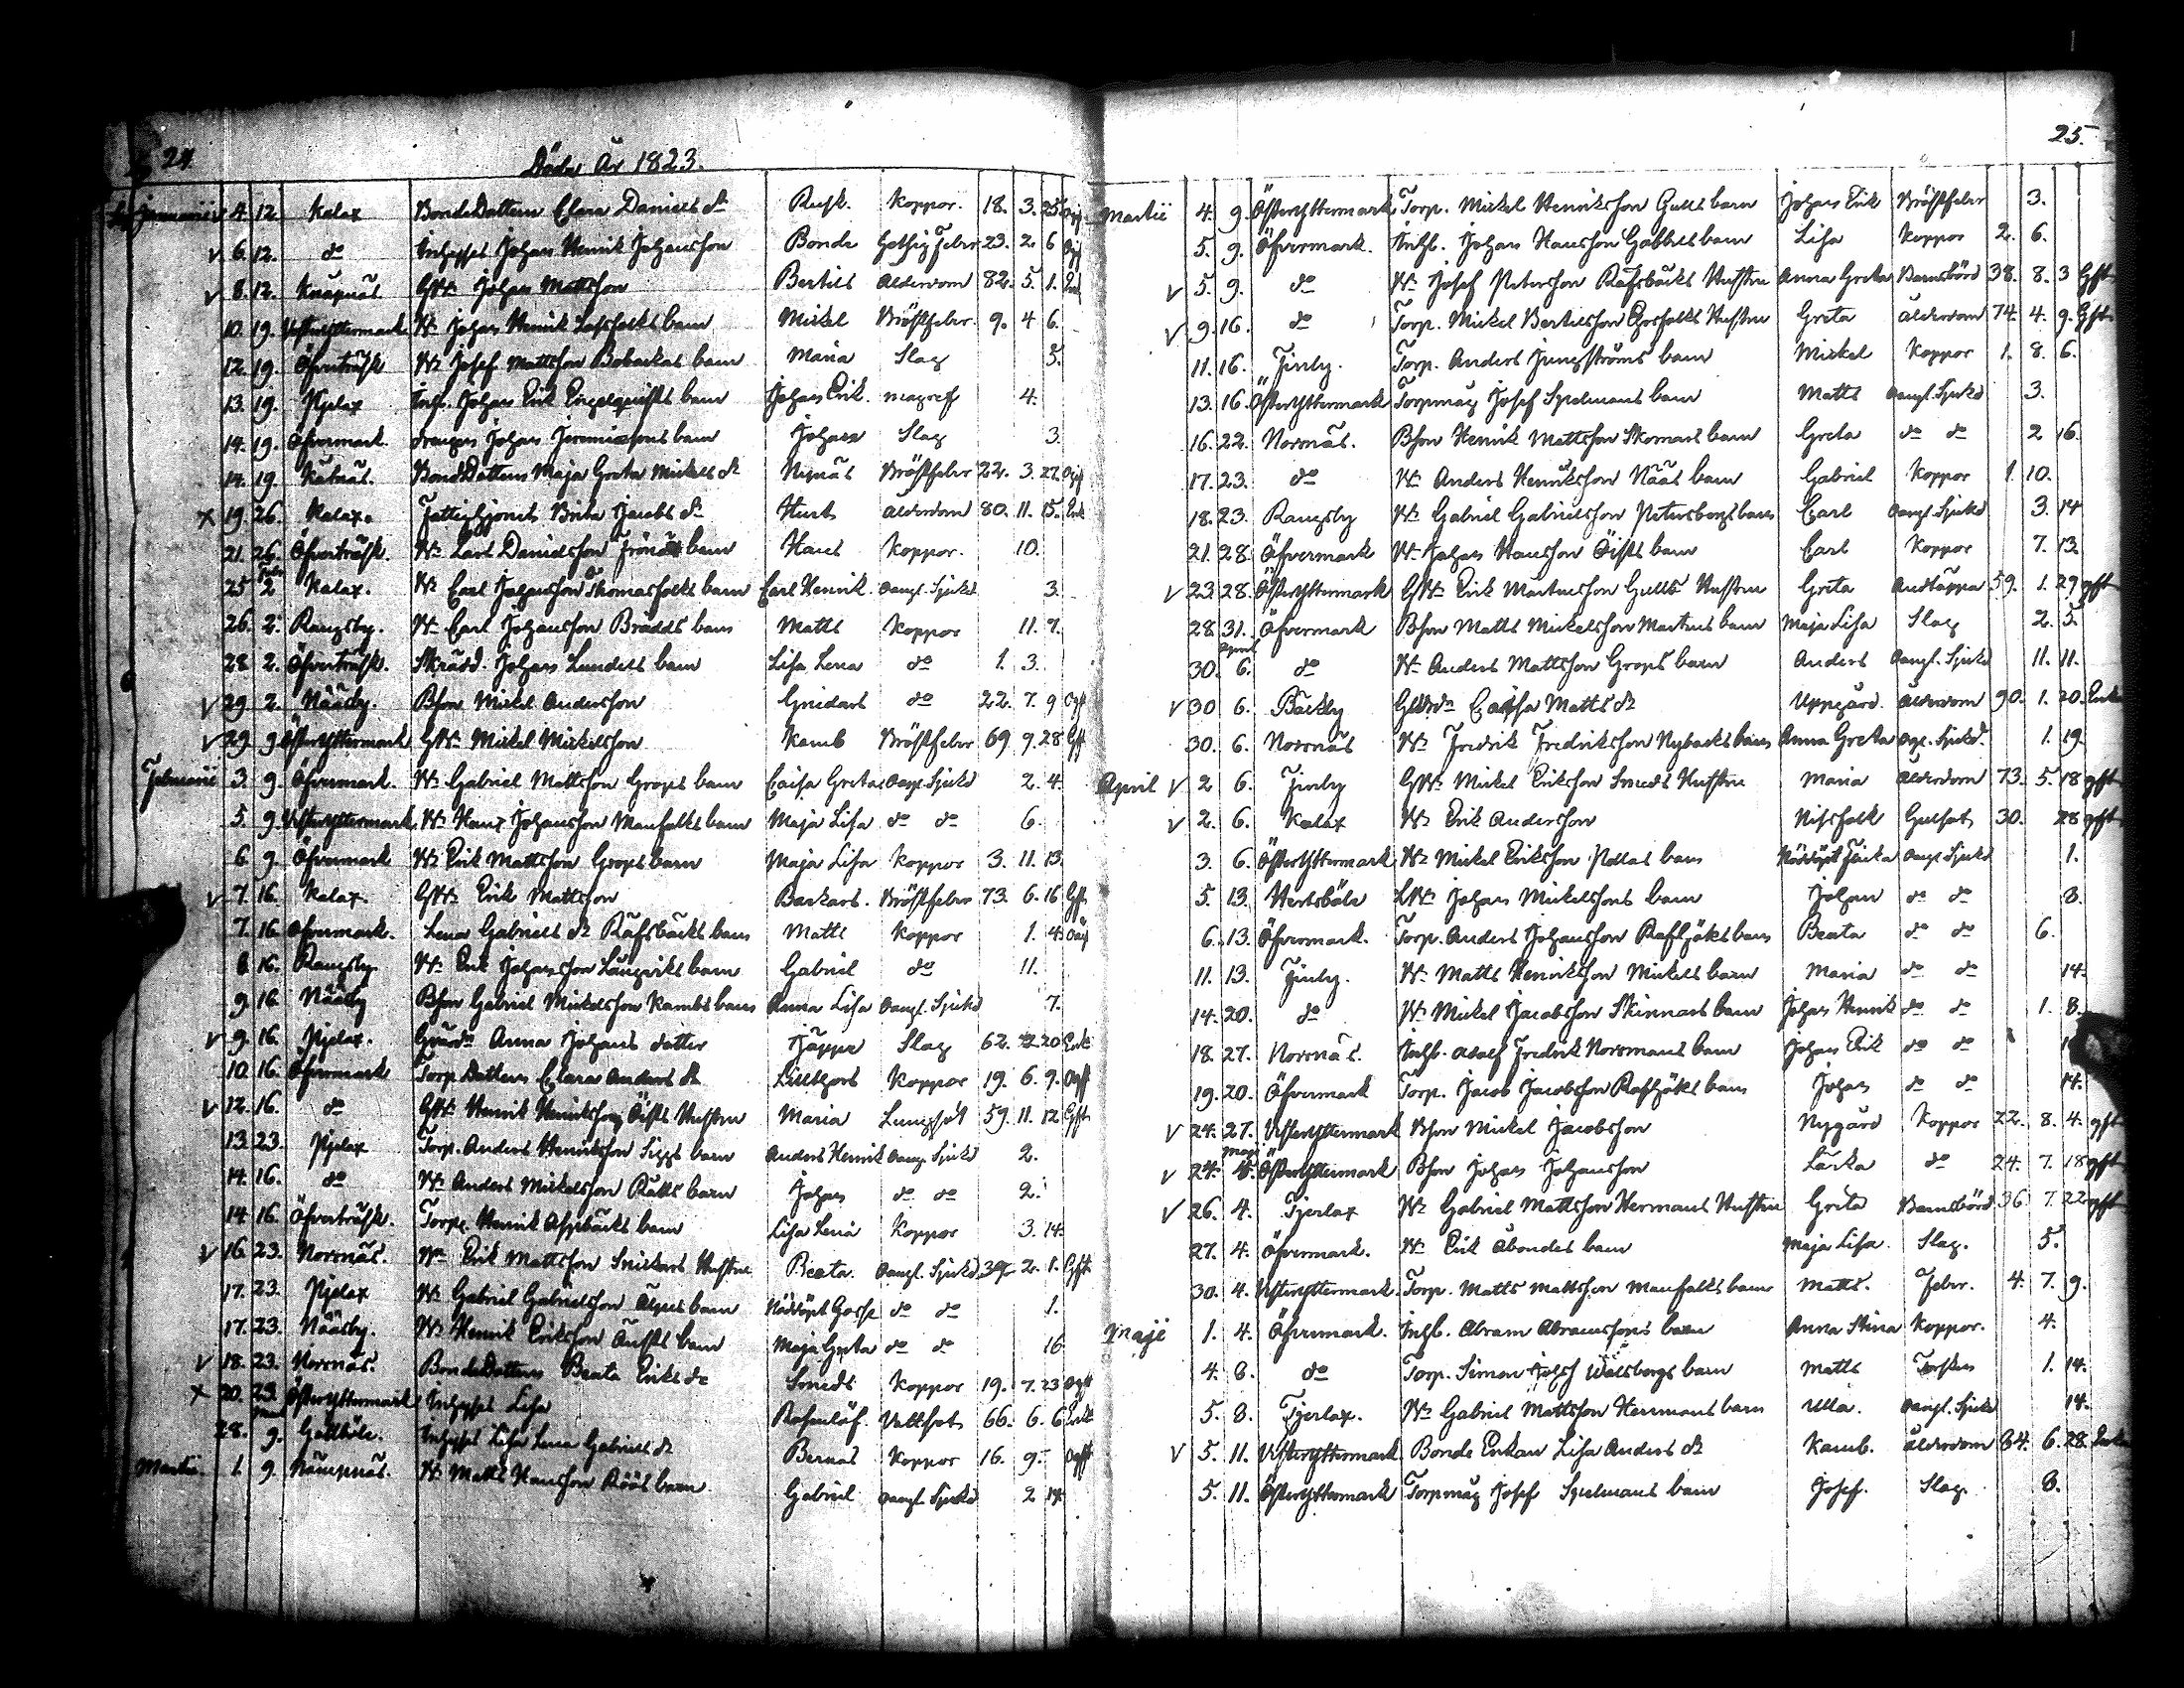 24.
Döde År 1823.
Januarii 4. 12. Kalax BondeDottern Clara Daniels dr Rusk. Koppor. 18. 3. 25.
v 6. 12. do Inhyses Johan Henrik Johansson Bonde Hetsig feber 23. 2. 6
v 8. 12. Knapnäs GBde Johan Mattsson Bertils Ålderdom 82. 5. 1. Enk
10. 19. Westerÿttermark Bde Johan Henrik barn Mickel Bröstfeber. 9. 4 6.
12. 19. Öfverträsk Bde Josef Mattsson Bobackas barn Maria Slag 5.
13. 19. Pjelax Inh. Johan Erik Engelqvists barn Johan Erik. magref 4.
14. 19. Öfvermark drengen Johan Jeremiæsons barn Johan Slag 3.
14. 19. Kåtnäs. BondeDottern Maja Greta Mickels dr Nynäs Bröstfeber 22. 3. 27.
x 19. 26. Kalax. Fattighjonet Brita Jacobs dr Ålderdom 80. 11. 15. Enk
21. 26. Öfverträsk. Bde Lars Danielsson barn Hans Koppor. 10.
25 2 Kalax. Bde Carl Johansson Thomasfolks barn Carl Henrik. Oangl. Sjukd 3.
26. 2. Rangsby. Bde Carl Johansson Brädds barn Matts Koppor 11. 9.
28 2. Öfverträsk. Skrädd. Johan Lundells barn Lisa Lena do 1. 3.
v 29. 2. Nääsby. Bson Mickel Andersson Gnidars do 22. 7. 9 Ogft
v 29. 9. Österÿttermark GBde Mickel Mickelsson Kamb Bröstfeber 69 9. 28 Gft
Februarii 3. 9. Öfvermark. Bde Gabriel Mattsson Grops barn Caisa Greta Oangl Sjukd 2. 4.
5. 9. Westerÿttermark Bde Hans Johansson Manfolks barn Maja Lisa do do 6.
6. 9. Öfvermark Bde Erik Mattsson Grops barn Maja Lisa Koppor 3. 11. 13.
v 7. 16. Kalax. GBde Erik Mattsson Backars. Bröstfeber 73. 6. 16 Gft
7. 16 Öfvermark. Lena Gabriels dr Räfsbäcks barn Matts Koppor 1. 4.
8. 16. Rangsby. Bde Erik Johansson Långviks barn Gabriel do 11.
9. 16. Nääsby Bson Gabriel Mickelsson Kambs barn Anna Lisa Oangl Sjukd 7.
v 9. 16. Pjelax. Anna Johans dotter Käppe Slag 62. 2. 20 Enk
10. 16. Öfvermark Torp Dottern Clara Anders dr Lillthors Koppor 19. 6. 9. Ogft
v 12. 16. do GBde Henrik Henriksson Öists Hustru Maria Lungsot 59. 11. 12 Gft
13. 23. Pjelax Torp. Anders Henriksson Siggs barn Anders Henrik Oangl Sjukd 2.
14. 16. do Bde Anders Mickelsson barn Johan do do 2.
14. 16. Öfverträsk. Torp. Henrik Aspbäcks barn Lisa Lena Koppor 3. 14.
v 16. 23. Norrnäs. Bde Erik Mattsson Snickars Hustru Beata. Oangl. Sjukd 39. 2. 1. Gft
17. 23. Pjelax Bde Gabriel Gabrielsson barn Nöddöpt Gosse do do 1.
17. 23. Nääsby. Bde Henrik Eriksson barn Maja Greta do do 16
v 18. 23. Norrnäs. BondeDottern Beata Eriks dr Smeds Koppor 19. 7. 23 Ogft
x 20. 23. Österÿttermark Inhyses Lisa Rosenlöf. Vattsot 66. 6. 6 Enk
28. 9. Gottböle. Inhyses Lisa Lena Gabriels dr Bernas Koppor 16. 9. Ogft
Martii 1. 9. Nämpnäs. Bde Matts Hansson Röös barn Gabriel Oangl Sjukd 2 14.
25.
Martii 4. 9. Österÿttermark Torp. Mickel Henriksson Gulls barn Johan Erik Bröstfeber 3.
5. 9. Öfvermark. Inhs. Johan Hansson Gabbels barn Lisa Koppor 2. 6.
v 5. 9. do Bde Josef Petersson Räfsbäcks Hustru Anna Greta Barnsbörd 38. 8. 3 Gft
v 9. 16. do Torp. Mickel Bertilsson Hustru Greta Ålderdom 74. 4. 9. Gft
11. 16. Finby. Torp. Anders Jungströms barn Mickel Koppor 1. 8. 6.
13. 16. Österÿttermark Torpmåg Josef Spelmans barn Matts Oangl. Sjukd 3.
16. 22. Norrnäs. Bson Henrik Mattsson Skomars barn Greta do do 2 16.
17. 23. do Bde Anders Henriksson Nääs barn Gabriel Koppor 1. 10.
18. 23. Rangsby Bde Gabriel Gabrielsson Petersborgs barn Carl Oangl. Sjukd 3. 14
21. 28. Öfvermark Bde Johan Hansson Öists barn Carl Koppor 7. 13
v 23. 28. Österÿttermark GBde Erik Martensson Gulls Hustru Greta Andtäppa 59. 1. 29 gft
28. 31. Öfvermark Bson Matts Mickelsson Martens barn Maja Lisa Slag 2. 5.
April
30. 6. do Bde Anders Mattsson Grops barn Anders Oangl. Sjukd 11. 11.
v 30 6. Bäckby Caisa Matts dr Uppgård. Ålderdom 90. 1. 20. Enka
30. 6. Norrnäs Bde Fredrik Fredriksson Nybacks barn Anna Greta Ogl. Sjukd. 1. 19.
April v 2 6. Finby GBde Mickel Eriksson Smeds Hustru Maria Ålderdom 73. 5. 18 gft
v 2. 6. Kalax Bde Erik Andersson Nissfolk Gulsot 30. 28 gft
3. 6. Österÿttermark Bde Mickel Eriksson Pellas barn Nöddöpt Flicka Oangl Sjukd 1.
5. 13. Hertsböle Bde Johan Mickelssons barn Johan do do 8.
6. 13. Öfvermark. Torp. Anders Johansson barn Beata do do 6.
11. 13. Finby. Bde Matts Henriksson Mickels barn Maria do do 14.
14. 20. do Bde Mickel Jacobsson Skinnars barn Johan Henrik do do 1. 8.
18. 27. Norrnäs. Inhs. Adolf Fredrik Norrmans barn Johan Erik do do
19. 20. Öfvermark Torp. Jacob Jacobsson barn Johan do do 14.
v 24. 27. Westerÿttermark Bson Mickel Jacobsson Nygård Koppor 22. 8. 4. gft
Maji
v 24. 4. Österÿttermark Bson Johan Johansson Lärka do 24. 7. 18 gft
v 26. 4. Tjerlax Bde Gabriel Mattsson Hermans Hustru Greta Barnsbörd 36 7. 22 gft
27. 4. Öfvermark. Bde Erik Åbondes barn Maja Lisa. Slag. 5.
30. 4. Westerÿttermark. Torp. Matts Mattsson Manfolks barn Matts. Feber. 4. 7. 9.
Maji 1. 4. Öfvermark. Inhs. Abram Abramssons barn Anna Stina Koppor. 4.
4. 8. do Torp. Simon barn Matts Torsken 1. 14.
5. 8. Tjerlax. Bde Gabriel Mattsson Hermans barn Ulla. Oangl. Sjukd 14.
v 5. 11. Westerÿttermark. Bonde Enkan Lisa Anders dr Kamb. Ålderdom 84. 6. 28. Enka
5. 11. Österÿttermark Torpmåg Josef Spelmans barn Josef. Slag. 8.